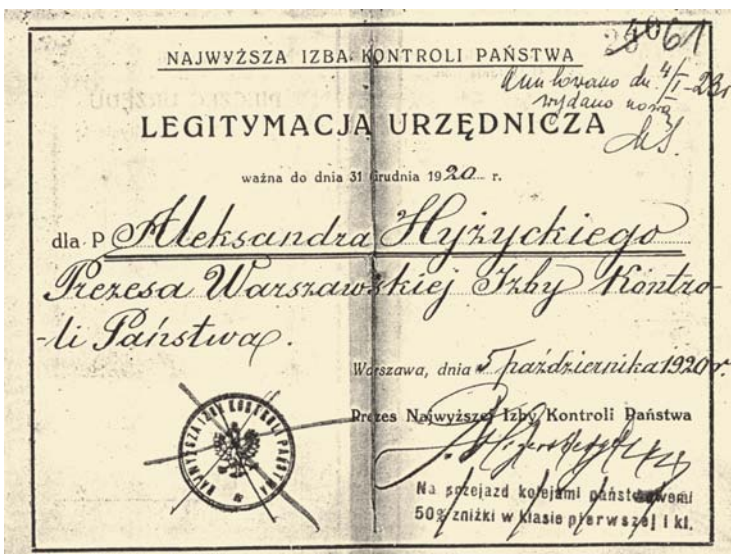 61
NAJWYŻSZA IZBA KONTROLI PAŃSTWA
Anulowano dn. 4/I-23r
wydano nową
LEGITYMACJA URZĘDNICZA
ważna do dnia 31 Grudnia 1920 r.
dla P Aleksandra Hyżyckiego
Prezesa Warszawskiej Izby Kontro-
-li Państwa.
Warszawa, dnia 5 października 1920 r.
Prezes Najwyższej Izby Kontroli Państwa
NAJWYŻSZA IZBA KONTROLI PAŃSTWA
Na przejazd kolejami państwowemi
50% zniżki w klasie pierwszej I kl.